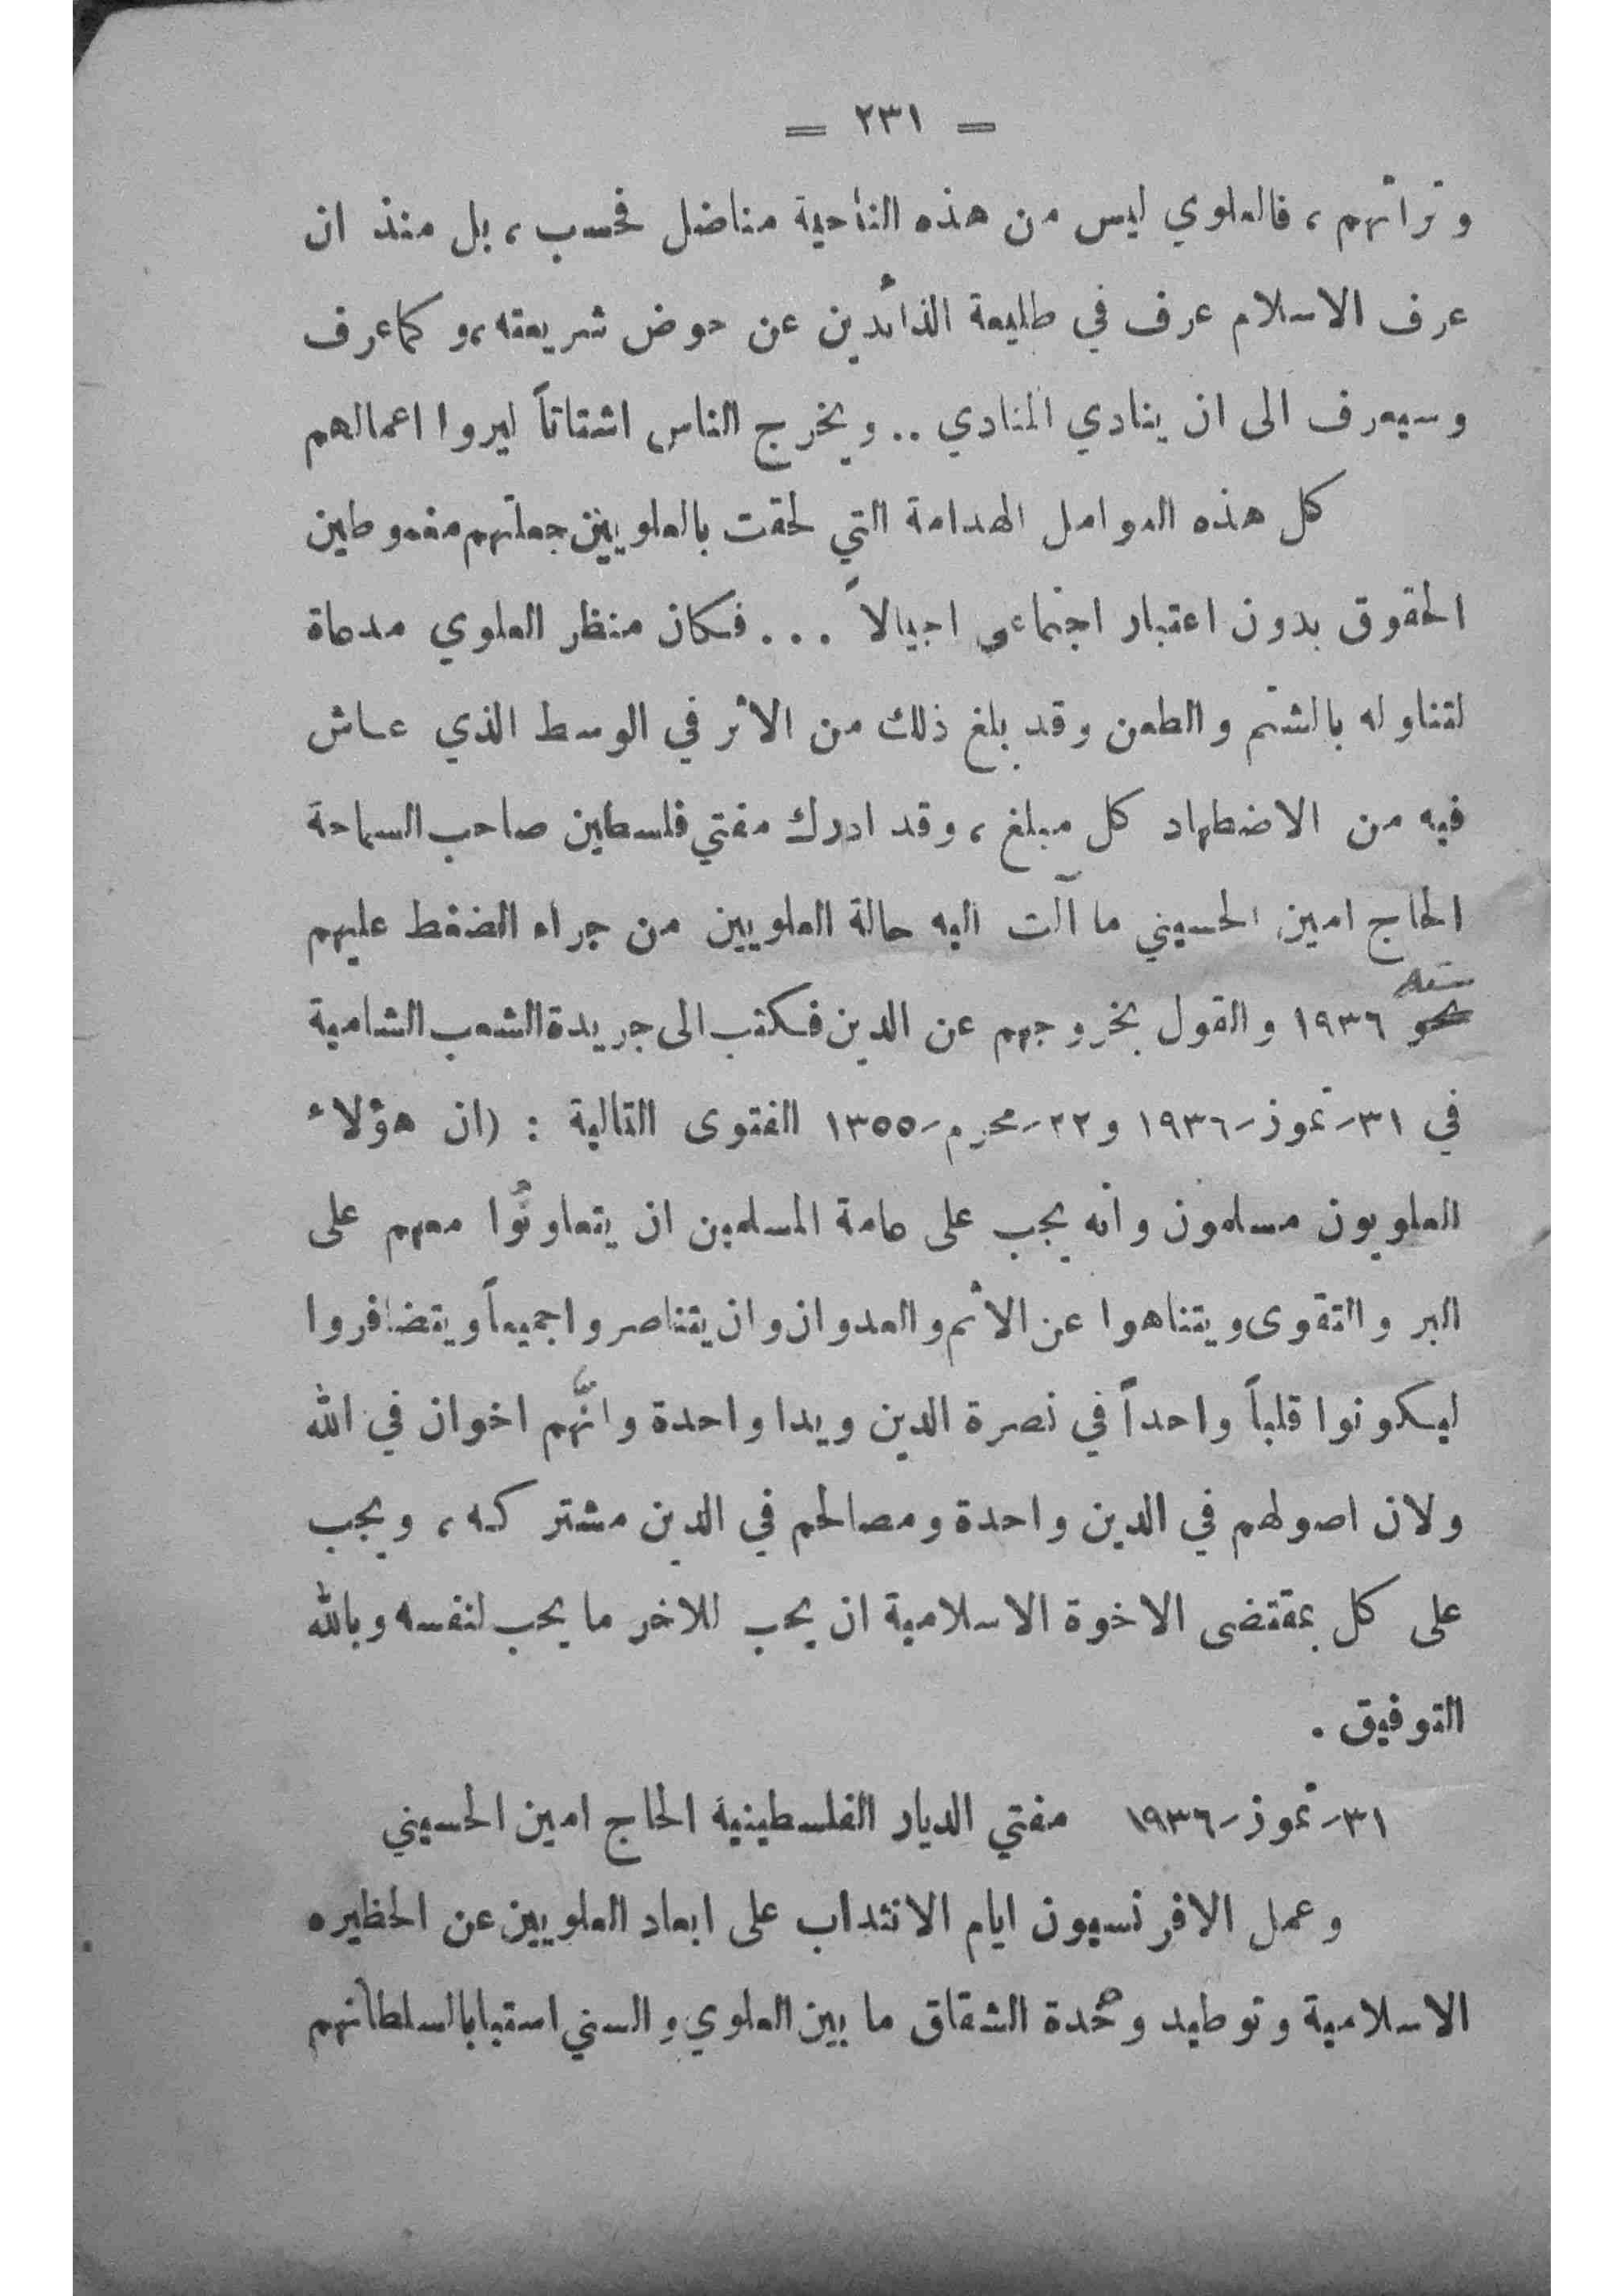 = ٢٣١ =
وتراثهم ، فالعلوي ليس من هذه الناحية مناضل فحسب ، بل منذ ان
عرف الاسلام عرف في طليعة الذائدين عن حوض شريعته ، وكما عرف
وسيعرف الى ان ينادي المنادي .. ويخرج الناس اشتاتاً ليروا اعمالهم
كل هذه العوامل الهدامة التي لحقت بالعلويين جعلتهم مغموطين
الحقوق بدون اعتبار اجتماعي اجيالاً ... فكان منظر العلوي مدعاة
لتناوله بالشتم والطعن وقد بلغ ذلك من الاثر في الوسط الذي عاش
فيه من الاضطهاد كل مبلغ ، وقد ادرك مفتي فلسطين صاحب السماحة
الحاج امين الحسيني ما آلت اليه حالة العلويين من جراء الضغط عليهم
سنة
نحو ١٩٣٦ والقول بخروجهم عن الدين فكتب الى جريدة الشعب الشامية
في ٣١-تموز-١٩٣٦ و٢٢-محرم-١٣٥٥ الفتوى التالية : (ان هؤلاء
العلويون مسلمون وانه يجب على عامة المسلمين ان يتعاونوا معهم على
البر والتقوى ويتناهوا عن الاثم والعدوان وان يتناصروا جميعاً ويتضافروا
ليكونوا قلباً واحداً في نصرة الدين ويدا واحدة وانهم اخوان في الله
ولان اصولهم في الدين واحدة ومصالحم في الدين مشتركه ، ويجب
على كل بمقتضى الاخوة الاسلامية ان يحب للاخر ما يحب لنفسه وبالله
التوفيق .
٣١-تموز-١٩٣٦ مفتي الديار الفلسطينية الحاج امين الحسيني
وعمل الافرنسيون ايام الانتداب على ابعاد العلويين عن الحظيره
الاسلامية وتوطيد وحدة الشقاق ما بين العلوي والسني استتبابا لسلطانهم